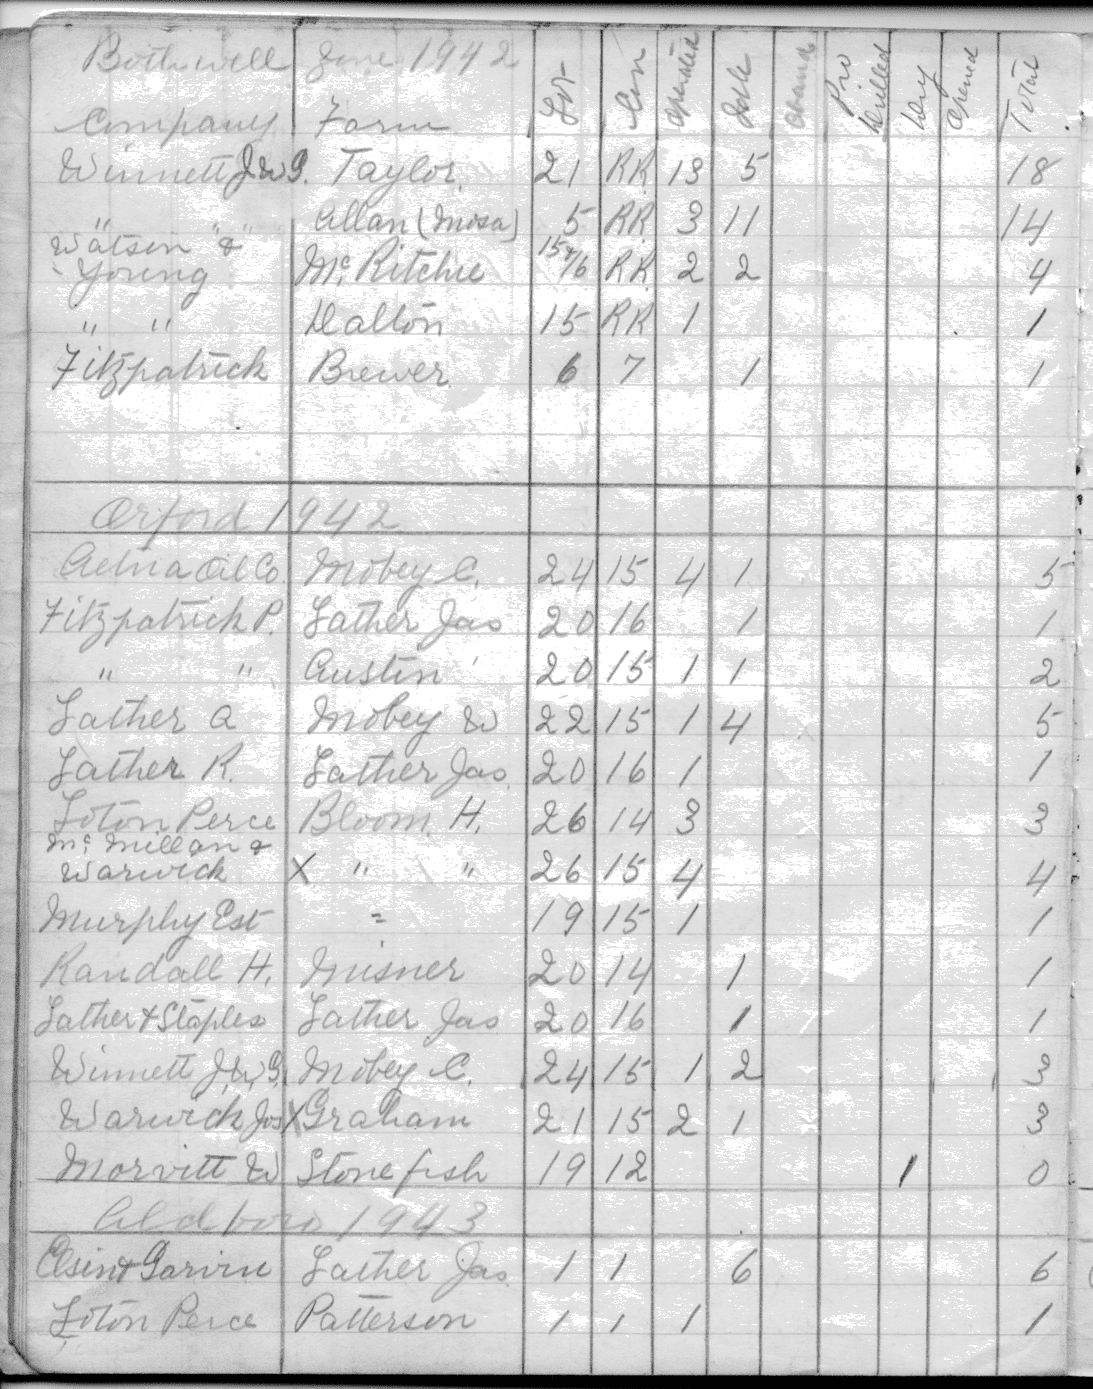 Bothwell June 1942
Company Farm Lot Con Operated Idle Aband Pro Drilled Dry Opened Total
Winnett J.W.G. Taylor. 21 RR 13 5 18
" " " Allan (Mosa) 5 RR 3 11 14
Watson &
Young McRitchie 15 4/6 RR 2 2 4
" " Dalton 15 RR 1 1
Fitzpatrick Brewer 6 7 1 1
Orford 1942
Aetna Oil Co. Mobey C. 24 15 4 1 5
Fitzpatrick P. Lather Jas 20 16 1 1
" " Austin 20 15 1 1 2
Lather A Mobey W 22 15 1 4 5
Lather R. Lather Jas. 20 16 1 1
Loton Perce Bloom, H. 26 14 3 3
Mc Millan &
Warwick X " " 26 15 4 4
Murphy Est = 19 15 1 1
Randall H. Misner 20 14 1 1
Lather & Staples Lather Jas 20 16 1 1
Winnett J.W.G. Mobey C. 24 15 1 2 3
Warwick Jos X Graham 21 15 2 1 3
Morvitt W Stonefish 19 12 1 0
Aldboro 1943
& Garvin Lather Jas. 1 1 6 6
Loton Perce Patterson 1 1 1 1